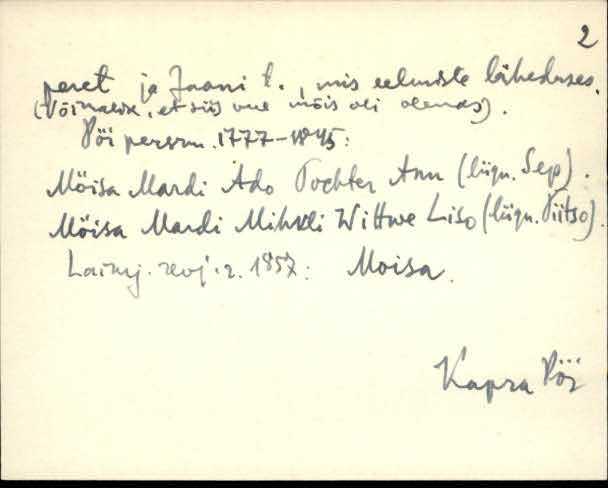 2
peret ja Jaani t., mis eelmiste läheduses.
(Võimalik, et siis uue mõis oli olemas).
Põi persrn. 1777-1845:
Möisa Mardi Ado Tochter Ann (liign. Sep).
Möisa Mardi Mihkli Wittwe Liso (liign. Piitso).
revj. r. 1857: Moisa.
Kapra Pöi